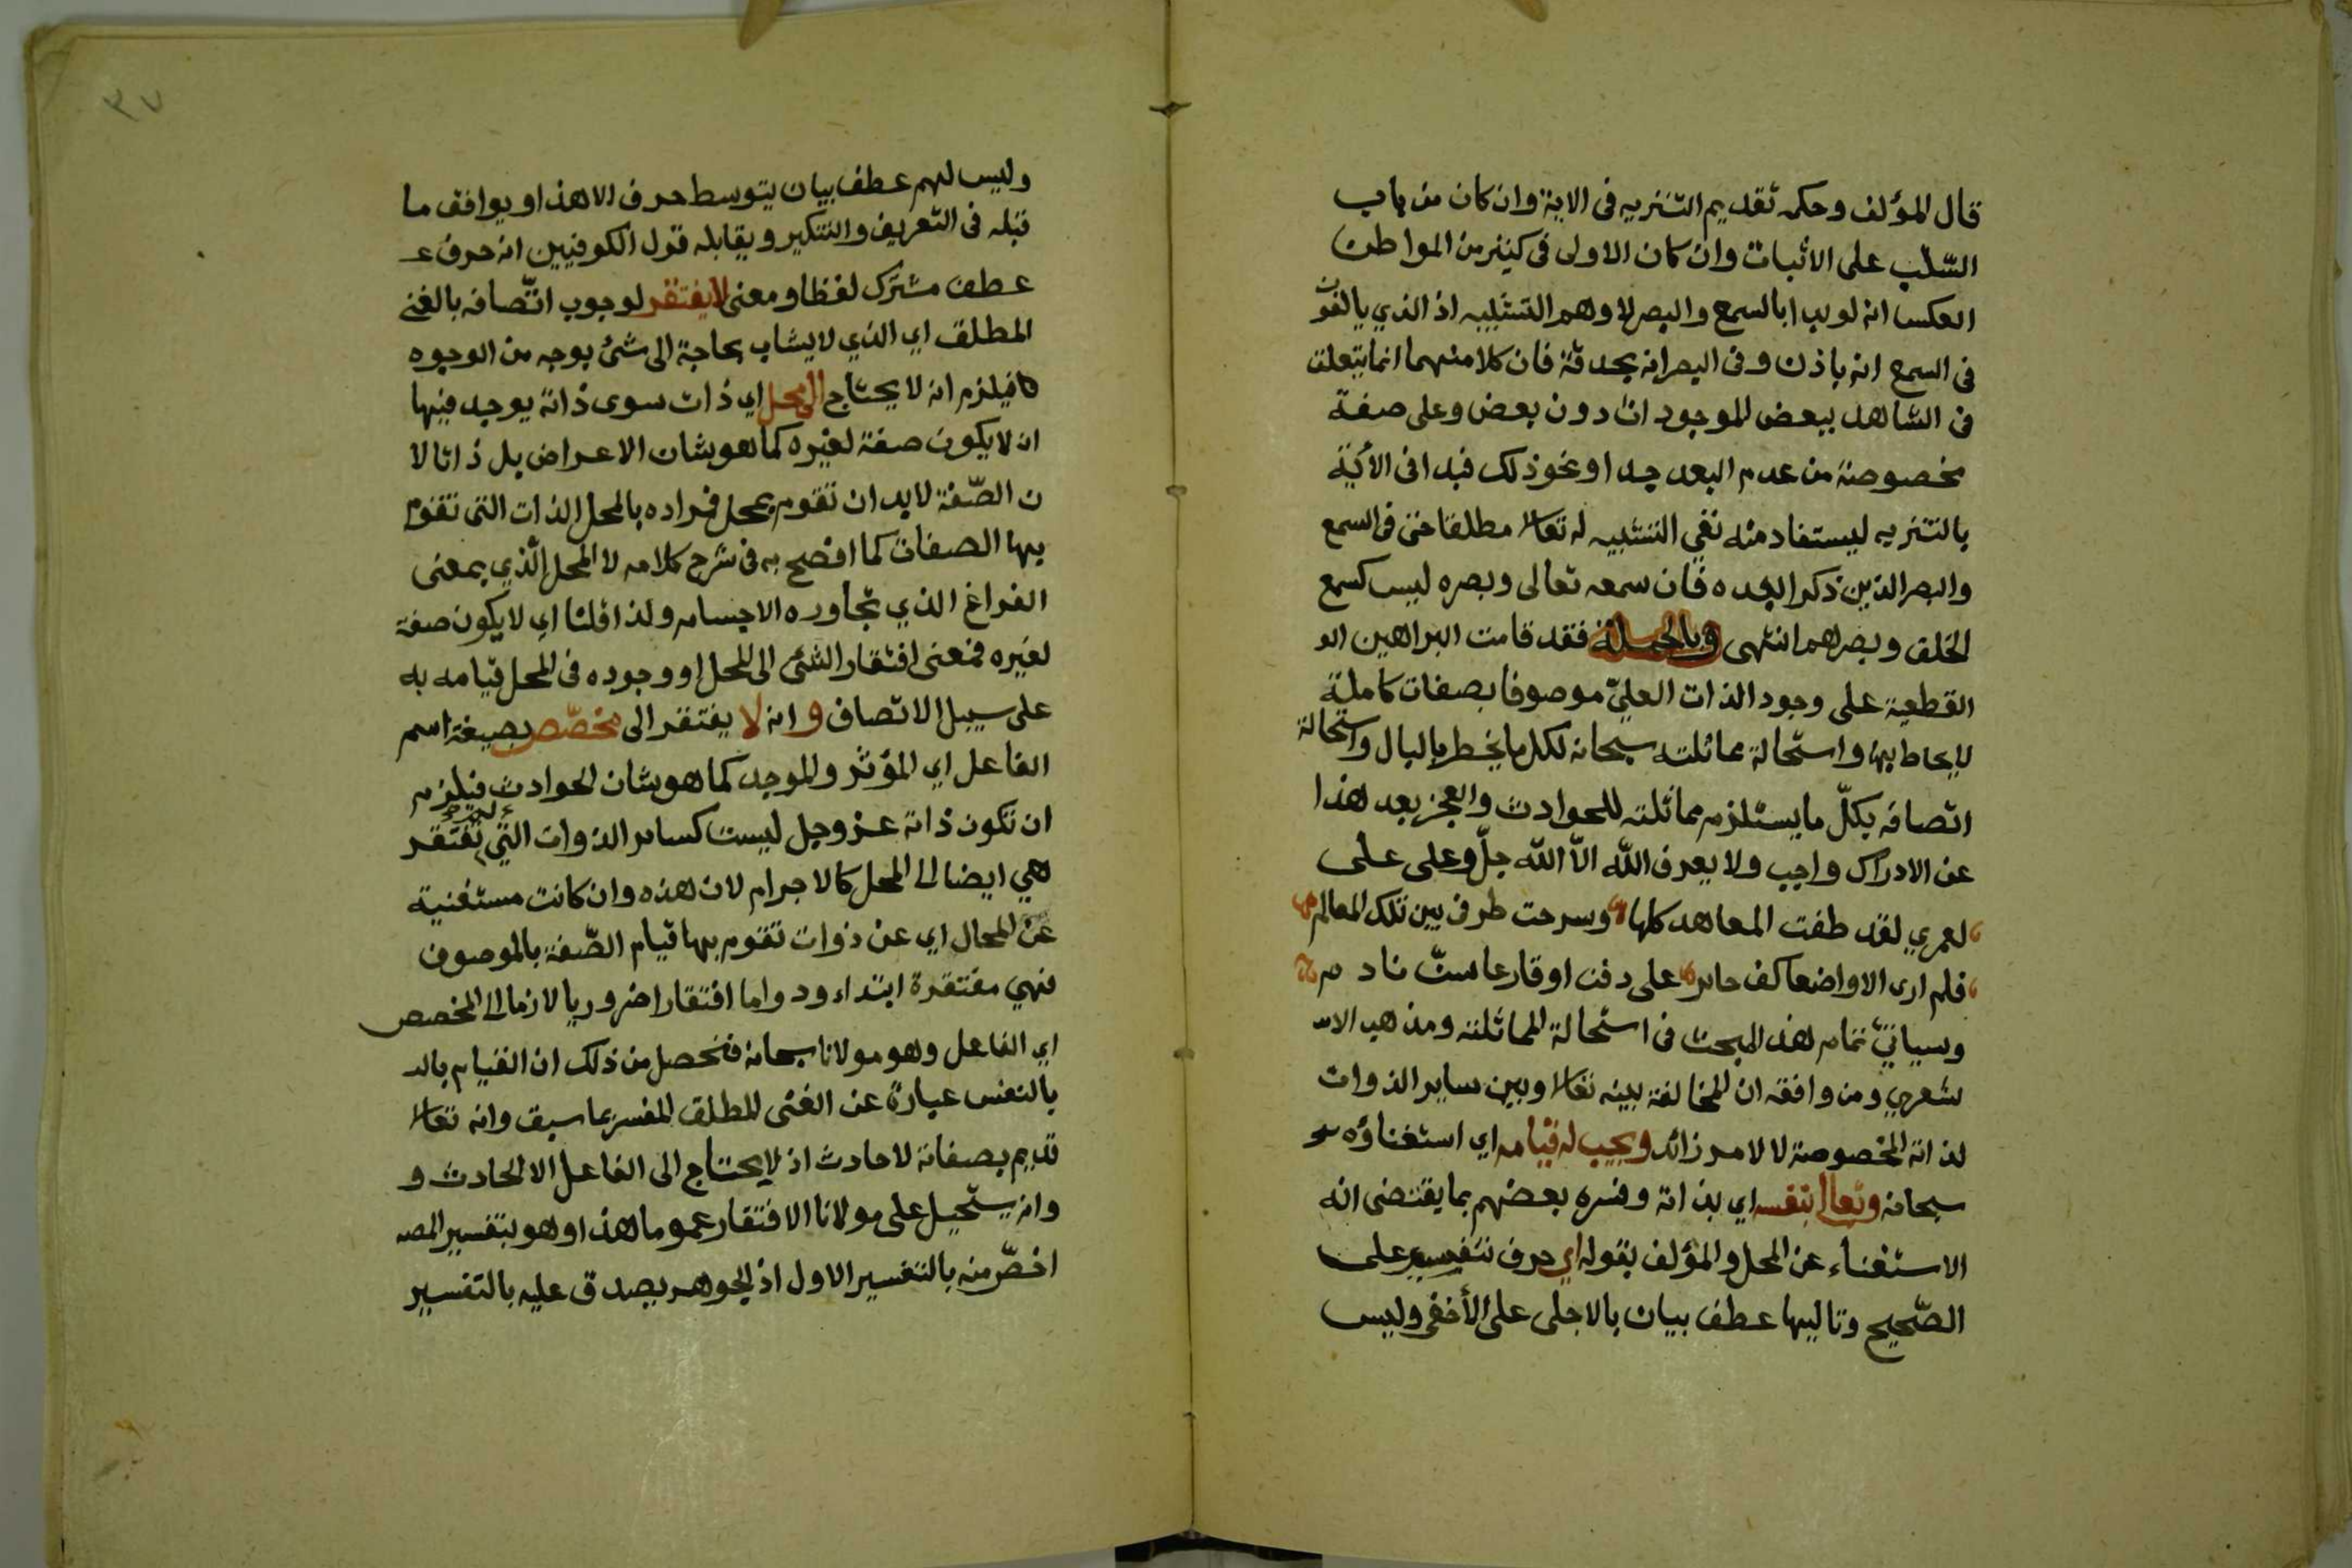 قال المؤلف وحكمه تقديم التنزيه فى الاية وان كان من باب
السّلب على الاثبات وان كان الاولى فى كثير من المواطن
العكس انه لو بدا بالسمع والبصر لاوهم التشبيه اذ الذي يالفون
فى السمع انه باذن وفى البصر انه بحدقة فان كلا منهما انما يتعلق
فى الشاهد ببعض الموجودات دون بعض وعلى صفة
مخصوصة من عدم البعد جدا ونحو ذلك فبدا فى الأية
بالتنزيه ليستفاد منه نفي التشبيه له تعالا مطلقا حتى فى السمع
والبصر الذين ذكرا بعده فان سمعه تعالى وبصره ليس كسمع
الخلق وبصرهم انتهى وبالجملة فقد قامت البراهين الو
القطعية على وجود الذات العليّ موصوفا بصفات كاملة
لا يحاط بها واستحالة مماثلته سبحانه لكل ما يخطر بالبال واستحالة
اتصافه بكلّ ما يستلزم مماثلته للحوادث والعجز بعد هذا
عن الادراك واجب ولا يعرف الله الاّ الله جلّ وعلى على
لعمري لقد طفت المعاهد كلها وسرحت طرفى بين تلك المعالم
فلم ارى الا واضعا كف حاير على دقن او قارعا سنّ نادم
وسيأتي تمام هذا المبحث فى استحالة المماثلته ومذهب الاسـ
شعري ومن وافقه ان المخالفة بينه تعالا وبين ساير الذوات
لذاته المخصوصة لا لامر زائد ويجب له قيامه اي استغناؤه
سبحانه وتعالى بنفسه اي بذاته وفسره بعضهم بما يقتضى انه
الاستغناء عن المحل والمؤلف بقوله اي حرف تفسير على
الصّحيح وتاليها عطف بيان بالاجلى على الأخفى وليس
٣٧
وليس لهم عطف بيان يتوسط حرف الا هذا ويوافق ما
قبله فى التعريف والتنكير ويقابله قول الكوفيين انه حرف عـ
عطف مشترك لفظا ومعنى لا يفتقر لوجوب اتّصافه بالغنى
المطلق اي الذي لا يشاب بحاجة الى شئ بوجه من الوجوه
فيلزم انه لا يحتاج الى محل اي ذات سوى ذاته يوجد فيها
ان لا يكون صفة لغيره كما هو شان الاعراض بل ذاتا لا
ن الصّفة لابد ان تقوم بمحل فمراده بالمحل الذات التى تقوم
بها الصفات كما افصح به فى شرح كلامه لا المحل الّذي بمعنى
الفراغ الذي تجاوره الاجسام ولذا قلنا اي لا يكون صفة
لغيره فمعنى افتقار الشئ الى المحل او وجوده فى المحل قيامه به
على سبيل الاتصاف و انه لا يفتقر الى مخصّص بصيغة اسم
الفاعل اي المؤثر والموجد كما هو شان الحوادث فيلزم
ان تكون ذاته عز وجل ليست كساير الذوات التي تفتقر
هي ايضا الى المحل كالاجرام لان هذه وان كانت مستغنية
عن المحال اي عن ذوات تقوم بها قيام الصّفة بالموصوف
فهي مفتقرة ابتداء ودواما افتقارا ضروريا لازما الى المخصص
اي الفاعل وهو مولانا سبحانه فتحصل من ذلك ان القيام بالـ
بالنفس عبارة عن الغنى المطلق المفسر بما سبق وانه تعالا
قديم بصفاته لا حادث اذ لا يحتاج الى الفاعل الا الحادث و
وانه يستحيل على مولانا الافتقار عموما هذا وهو بتفسير المصـ
اخصّ منه بالتفسير الاول اذ الجوهر يصدق عليه بالتفسير